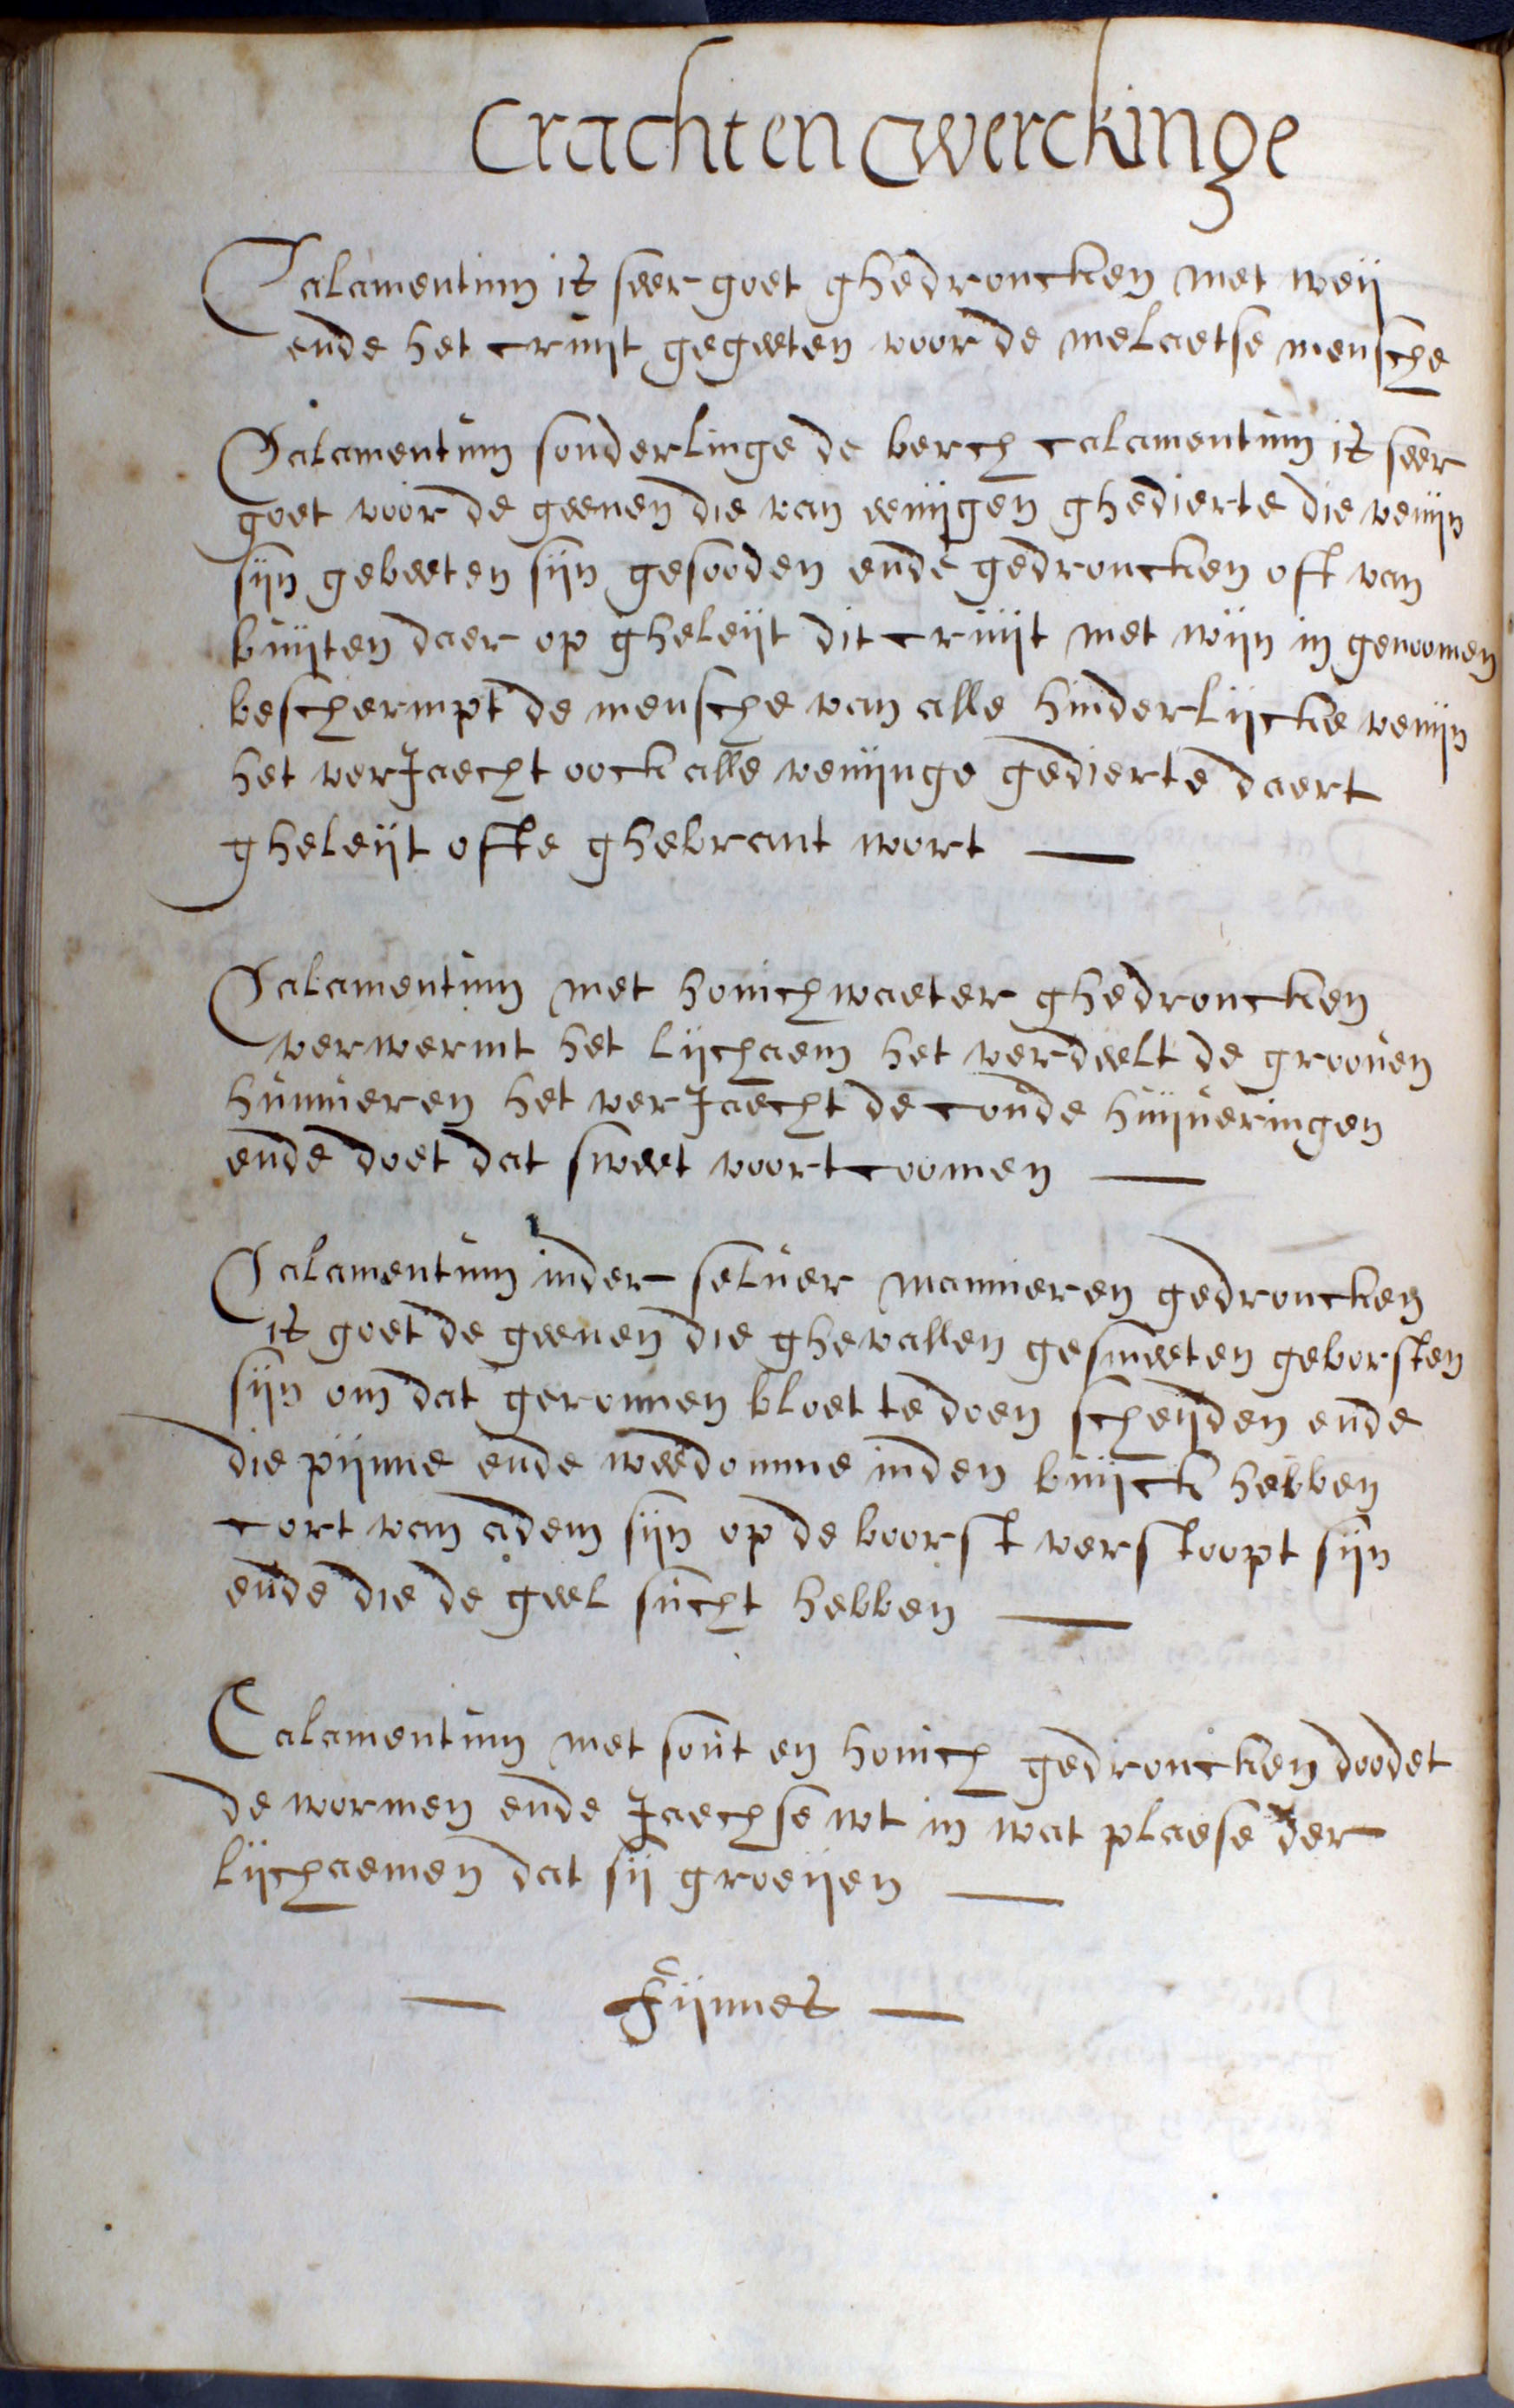 Cracht en werckinge
Calamentum is seer goet ghedroncken met weij
ende het cruijt gegeeten voor de melaetse mensche
Calamentum sonderlinge de berch calamentum is seer
goet voor de geenen die van eenijgen ghedierte die venijn
sijn gebeeten sijn gesooden ende gedroncken oft van
buijten daer op gheleijt dit cruijt met wijn in genoomen
beschermpt de mensche van alle hinderlijcke venijn
het verJaecht oock alle venijnge gedierte daert
gheleijt ofte ghebrant wort —
Calamentum met honich waeter ghedroncken
verwermt het lijchaem het verdeelt de grooven
humueren het verJaecht de coude huijveringen
ende doet dat sweet voort coomen —
Calamentum inder selver mannieren gedroncken
is goet de geenen die ghevallen gesmeeten geborsten
sijn om dat geronnen bloet te doen scheijden ende
die pijnne ende weedomme inden buijck hebben
cort van adem sijn op de boorst verstoopt sijn
ende die de geel sucht hebben —
Calamentum met sout en honich gedroncken doodet
de wormen ende Jaechse wt in wat plaese der
lijchaemen dat sij groeijen —
— Fijnnes —